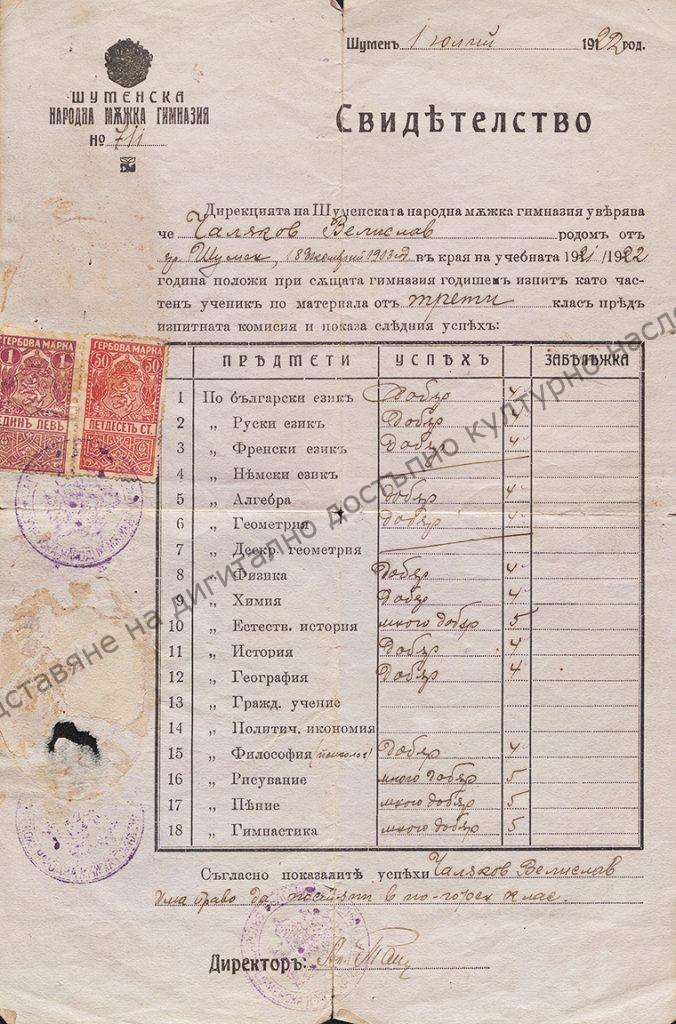 Шуменъ 1 юлий 1922 год.
ШУМЕНСКА
НАРОДНА МѪЖКА ГИМНАЗИЯ
№ 711
Свидѣтелство
Дирекцията на Шуменската народна мѫжка гимназия увѣрява
че Чаляков Велислав родомъ отъ
гр. Шумен, (8 декемврий 1903 г.) въ края на учебната 1921/1922
година положи при сѫщата гимназия годишенъ изпитъ като час-
тенъ ученикъ по материала отъ трети класъ прѣдъ
изпитната комисия и показа слѣдния успѣхъ:
ПРѢДМЕТИ УСПѢХЪ ЗАБѢЛѢЖКА
1 По български езикъ Добър 4
2 „ Руски езикъ Добър 4
3 „ Френски езикъ Добър 4
4 „ Нѣмски езикъ
5 „ Алгебра Добър 4
6 „ Геометрия Добър 4
7 „ Дескр. геометрия
8 „ Физика Добър 4
9 „ Химия Добър 4
10 „ Естеств. история много добър 5
11 „ История Добър 4
12 „ География Добър 4
13 „ Гражд. учение
14 „ Политич. икономия
15 „ Философия Добър 4
16 „ Рисуване много добър 5
17 „ Пѣние много добър 5
18 „ Гимнастика много добър 5
Съгласно показалитѣ успѣхи Чаляков Велислав
има право да постѫпи в по-горен клас.
Директоръ:
ГЕРБОВА МАРКА
1 1
ЕДИНЪ ЛЕВЪ
ГЕРБОВА МАРКА
50 50
ПЕТДЕСЕТЬ СТ.
дставяне на дигитално достъпно културно насле